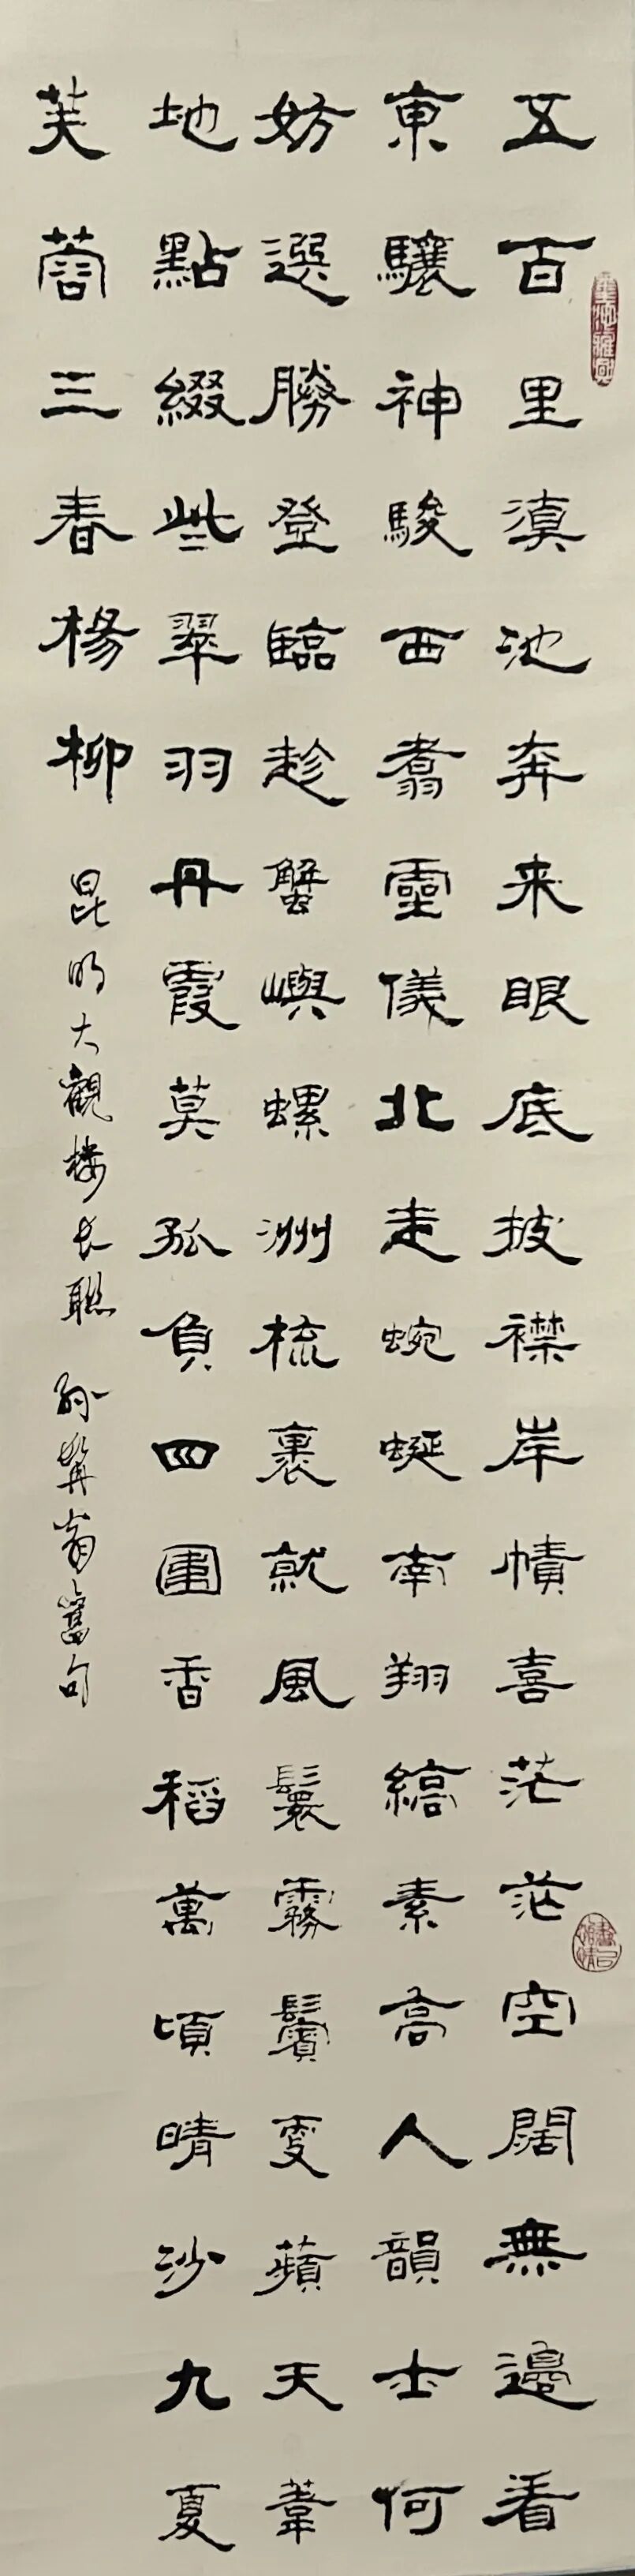 五百里滇池奔来眼底披襟岸幘喜茫茫空闊無邊看
東驤神駿西翥靈儀北走蜿蜒南翔縞素高人韻士何
妨選勝登臨趁蟹嶼螺洲梳裹就風鬟霧鬢更蘋天葦
地點綴些翠羽丹霞莫孤負四圍香稻萬頃晴沙九夏
芙蓉三春楊柳
昆明大觀楼长聯 孫髯翁舊句